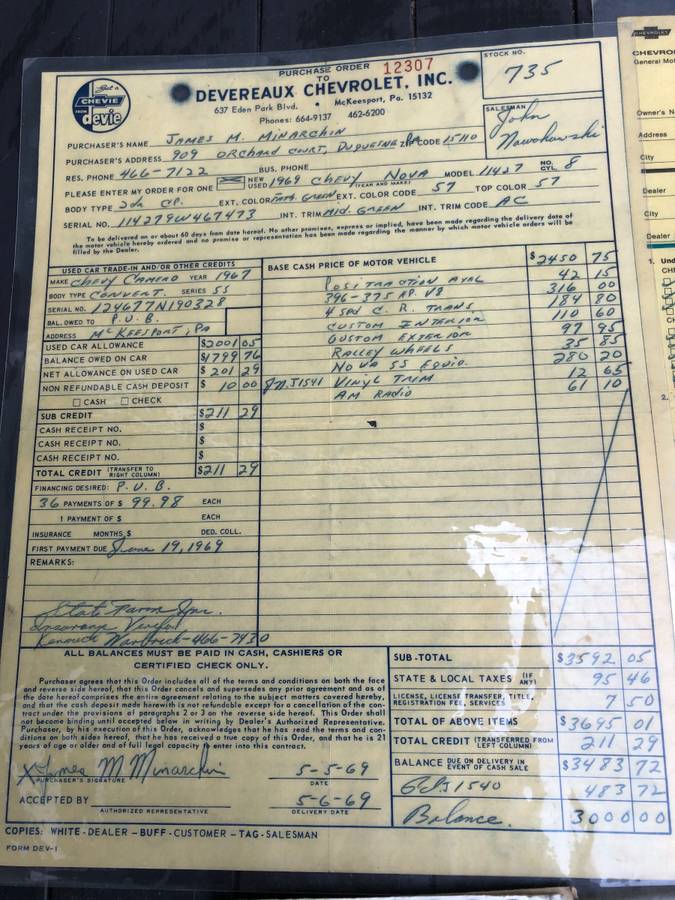 PURCHASE ORDER 12307
TO
DEVEREAUX CHEVROLET, INC.
637 Eden Park Blvd. • McKeesport, Pa. 15132
Phones: 664-9137 462-6200
Get a
CHEVIE
FROM
devie
STOCK NO.
735
SALESMAN
John
Nowohowski
PURCHASER'S NAME JAMES M. MINARCHIN
PURCHASER'S ADDRESS 909 ORCHARD COURT, DUQUESNE, PA ZIP CODE 15110
RES. PHONE 466-7122 BUS. PHONE
PLEASE ENTER MY ORDER FOR ONE NEW USED 1969 CHEVY NOVA (YEAR AND MAKE) MODEL 11427 NO. CYL. 8
BODY TYPE 2dr CP. EXT. COLOR GREEN EXT. COLOR CODE 57 TOP COLOR 57
SERIAL NO. 114279W467473 INT. TRIM MID. GREEN INT. TRIM CODE AC
To be delivered on or about 60 days from date hereof. No other promises, express or implied, have been made regarding the delivery date of
the motor vehicle hereby ordered and no promise or representation has been made regarding the manner by which motor vehicle orders will be
filled by the Dealer.
USED CAR TRADE-IN AND/OR OTHER CREDITS
MAKE CHEVY CAMERO YEAR 1967
BODY TYPE CONVERT. SERIES SS
SERIAL NO. 124677N190328
BAL. OWED TO P.U.B.
ADDRESS McKEESPORT, PA
USED CAR ALLOWANCE $2001 05
BALANCE OWED ON CAR $1799 76
NET ALLOWANCE ON USED CAR $201 29
NON REFUNDABLE CASH DEPOSIT $10 00
CASH CHECK
SUB CREDIT $211 29
CASH RECEIPT NO. $
CASH RECEIPT NO. $
CASH RECEIPT NO. $
TOTAL CREDIT (TRANSFER TO RIGHT COLUMN) $211 29
FINANCING DESIRED: P.U.B.
36 PAYMENTS OF $ 99.98 EACH
1 PAYMENT OF $ EACH
INSURANCE MONTHS $ DED. COLL.
FIRST PAYMENT DUE June 19, 1969
REMARKS:
State Farm Ins.
Insurance
Kenneth 466-7430
BASE CASH PRICE OF MOTOR VEHICLE $2450 75
POSITRACTION AXAL 42 15
396-375 HP. V8 316 00
4 SPD C.R. TRANS 184 80
CUSTOM INTERIOR 110 60
CUSTOM EXTERIOR 97 95
RALLEY WHEELS 35 85
NOVA SS EQUIP. 280 20
J1541 VINYL TRIM 12 65
AM RADIO 61 10
ALL BALANCES MUST BE PAID IN CASH, CASHIERS OR
CERTIFIED CHECK ONLY.
Purchaser agrees that this Order includes all of the terms and conditions on both the face
and reverse side hereof, that this Order cancels and supersedes any prior agreement and as of
the date hereof comprises the entire agreement relating to the subject matters covered hereby,
and that the cash deposit made herewith is not refundable except for a cancellation of the con-
tract under the provisions of paragraphs 2 or 3 on the reverse side hereof. This Order shall
not become binding until accepted below in writing by Dealer's Authorized Representative.
Purchaser, by his execution of this Order, acknowledges that he has read the terms and con-
ditions on both sides hereof, that he has received a true copy of this Order, and that he is 21
years of age or older and of full legal capacity to enter into this contract.
X James M Minarchin 5-5-69
PURCHASER'S SIGNATURE DATE
ACCEPTED BY 5-6-69
AUTHORIZED REPRESENTATIVE DELIVERY DATE
SUB-TOTAL $3592 05
STATE & LOCAL TAXES (IF ANY) 95 46
LICENSE, LICENSE TRANSFER, TITLE, REGISTRATION FEE, SERVICES 7 50
TOTAL OF ABOVE ITEMS $3695 01
TOTAL CREDIT (TRANSFERRED FROM LEFT COLUMN) 211 29
BALANCE DUE ON DELIVERY IN EVENT OF CASH SALE $3483 72
J1540 483 72
Balance. 3000 00
COPIES: WHITE - DEALER - BUFF - CUSTOMER - TAG - SALESMAN
FORM DEV-1
CHEVROLET
CHEVRO
General Mo
Owner's N
Address
City
Dealer
City
Dealer
1. Und
2.